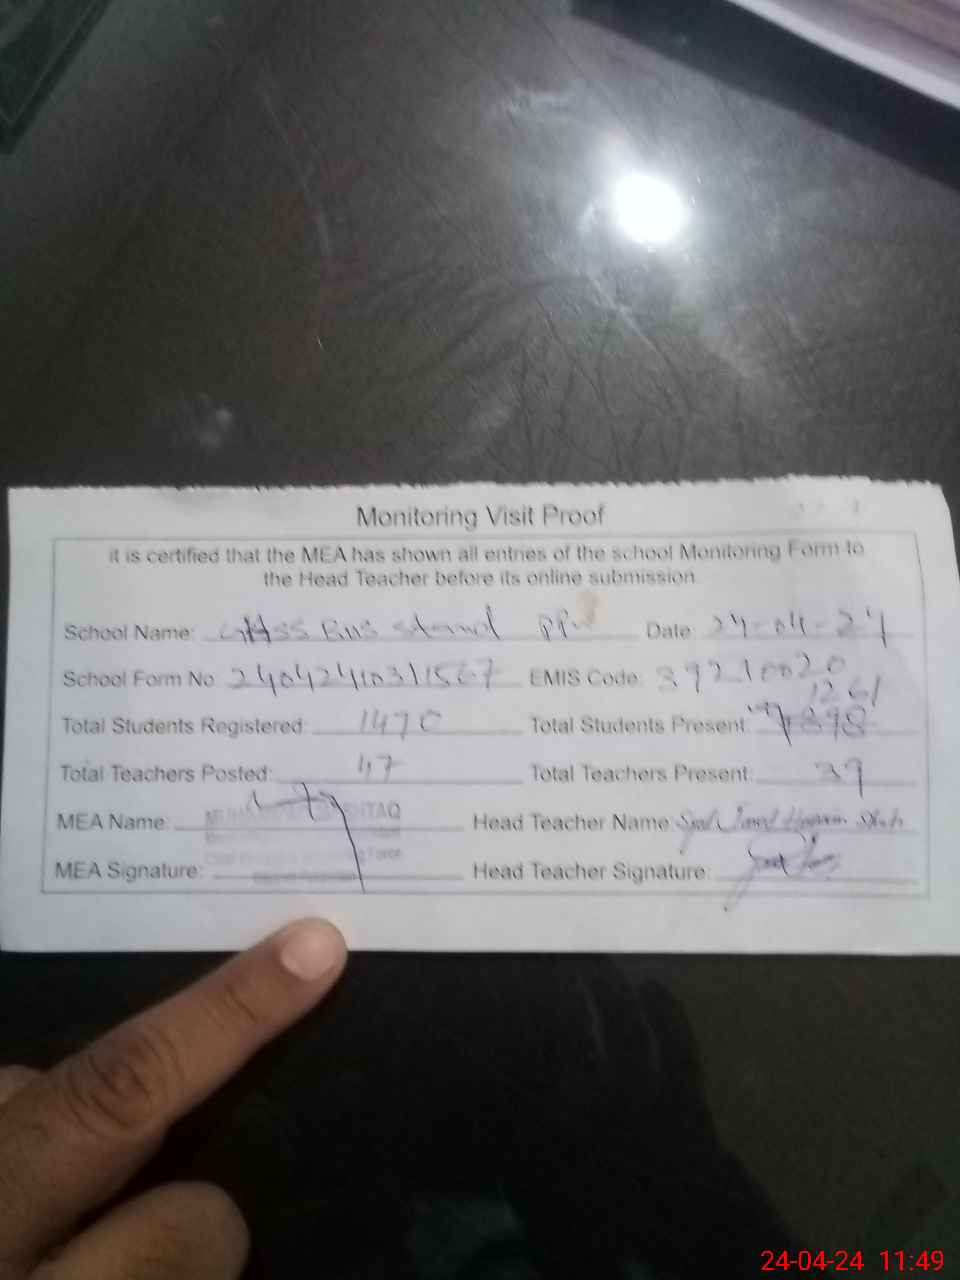 Monitoring Visit Proof
it is certified that the MEA has shown all entries of the school Monitoring Form to
the Head Teacher before its online submission.
School Name: GHSS Bus Stand Date: 24-04-24
School Form No 24042410311567 EMIS Code: 39210020
1261
Total Students Registered: 1470 Total Students Present: 898
Total Teachers Posted: 47 Total Teachers Present: 39
MEA Name: Head Teacher Name: Syed Hussain Shah
MEA Signature: Force Head Teacher Signature:
24-04-24 11:49